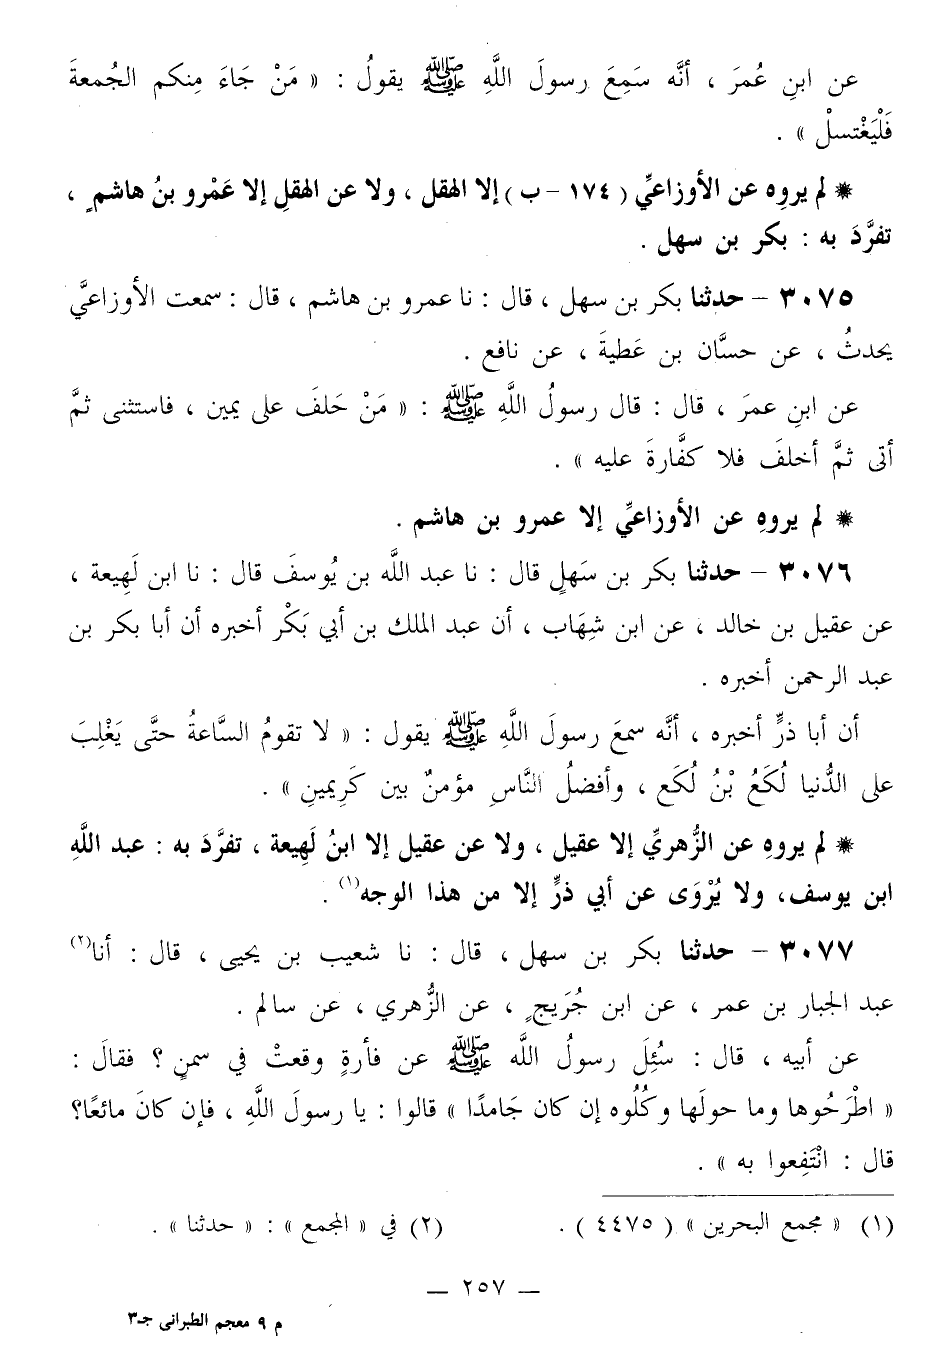 عن ابنِ عُمرَ ، أنَّه سَمِعَ رسولَ اللَّهِ ﷺ يقولُ : « مَنْ جَاءَ مِنكم الجُمعةَ
فَلْيَغْتسلْ » .
* لم يروِه عن الأوزاعيِّ ( ١٧٤ - ب ) إلا الهقل ، ولا عن الهقلِ إلا عَمْرو بنُ هاشمٍ ،
تفرَّدَ به : بكر بن سهل .
٣٠٧٥ - حدثنا بكر بن سهل ، قال : نا عمرو بن هاشم ، قال : سمعت الأوزاعيَّ
يحدثُ ، عن حسَّان بن عَطيةَ ، عن نافع .
عن ابنِ عمرَ ، قال : قال رسولُ اللَّهِ ﷺ : « مَنْ حَلفَ على يمين ، فاستثنى ثمَّ
أتى ثمَّ أخلفَ فلا كفَّارةَ عليه » .
* لم يروهِ عن الأوزاعيِّ إلا عمرو بن هاشم .
٣٠٧٦ - حدثنا بكر بن سَهلٍ قال : نا عبد اللَّه بن يُوسفَ قال : نا ابن لَهِيعة ،
عن عقيل بن خالد ، عن ابن شِهَاب ، أن عبد الملك بن أبي بَكْر أخبره أن أبا بكر بن
عبد الرحمن أخبره .
أن أبا ذرٍّ أخبره ، أنَّه سمعَ رسولَ اللَّهِ ﷺ يقول : « لا تقومُ السَّاعةُ حتَّى يَغْلِبَ
على الدُّنيا لُكَعُ بْنُ لُكَع ، وأفضلُ النَّاسِ مؤمنٌ بين كَرِيمينِ » .
* لم يروهِ عن الزُّهريِّ إلا عقيل ، ولا عن عقيل إلا ابنُ لَهِيعة ، تفرَّدَ به : عبد اللَّهِ
ابن يوسف، ولا يُرْوَى عن أبي ذرٍّ إلا من هذا الوجه(١) .
٣٠٧٧ - حدثنا بكر بن سهل ، قال : نا شعيب بن يحيى ، قال : أنا(٢)
عبد الجبار بن عمر ، عن ابن جُرَيجٍ ، عن الزُّهري ، عن سالم .
عن أبيه ، قال : سُئِلَ رسولُ اللَّه ﷺ عن فأرةٍ وقعتْ في سمنٍ ؟ فقالَ :
« اطْرَحُوها وما حولَها وكُلُوه إن كان جَامدًا » قالوا : يا رسولَ اللَّهِ ، فإن كانَ مائعًا؟
قال : انْتَفِعوا به » .
(١) « مجمع البحرين » ( ٤٤٧٥ ) . (٢) في « المجمع » : « حدثنا » .
— ٢٥٧ —
م ٩ معجم الطبراني جـ٣